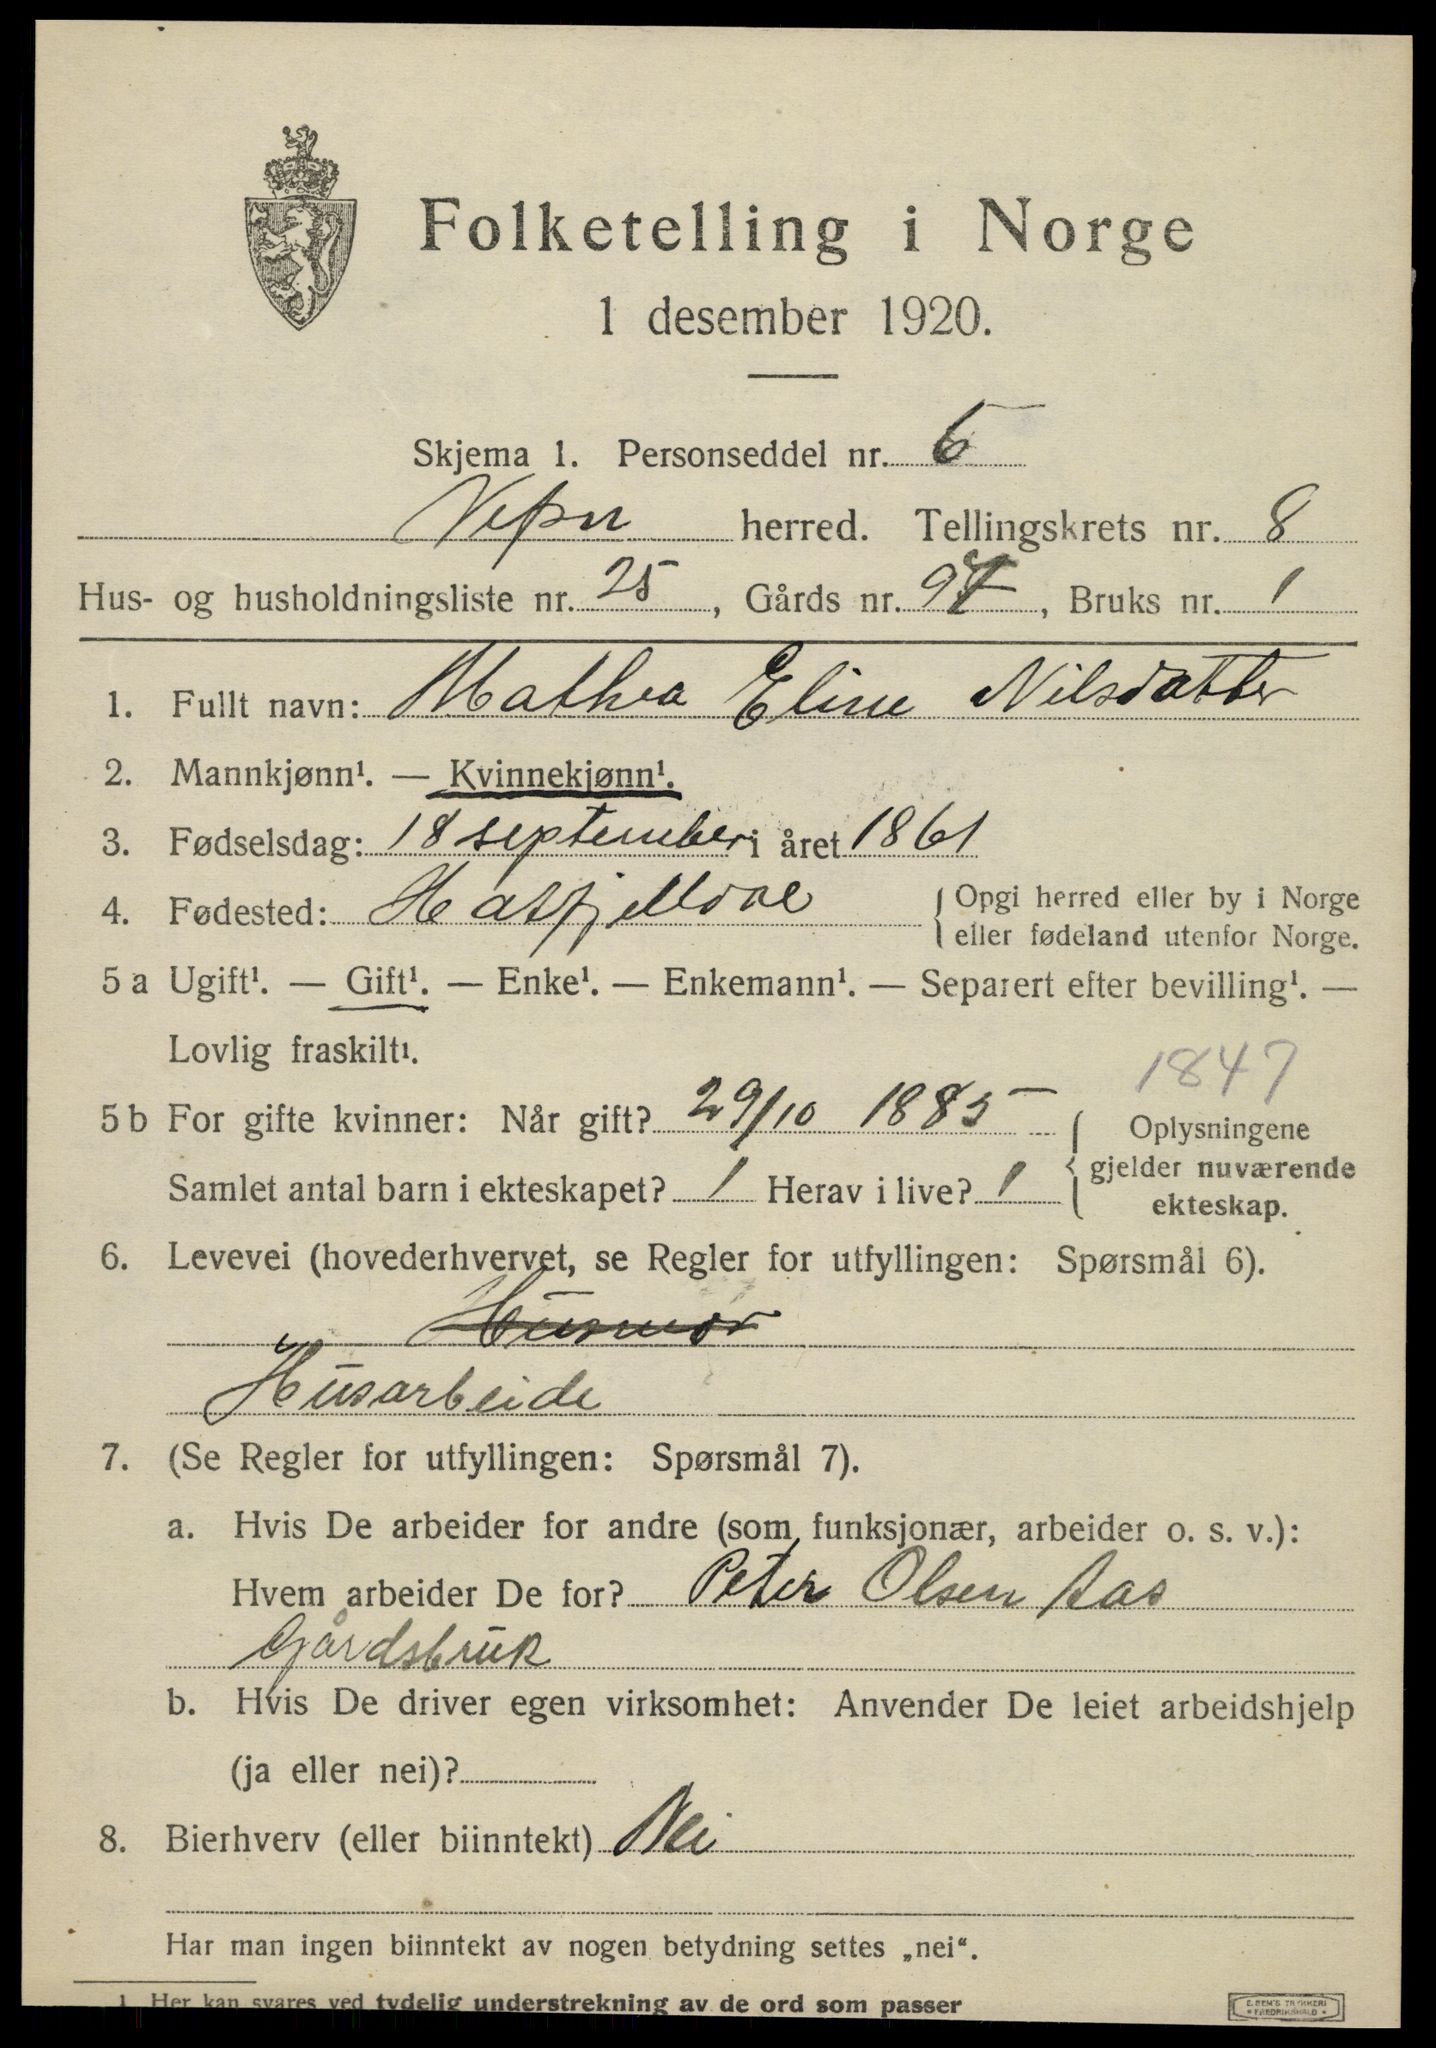 Folketelling i Norge
1 desember 1920.
Skjema 1. Personseddel nr. 6
Vefsn herred. Tellingskrets nr. 8
Hus- og husholdningsliste nr. 25, Gårds nr. 97, Bruks nr. 1
1. Fullt navn: Mathea Eline Nilsdatter
2. Mannkjønn¹. — Kvinnekjønn¹.
3. Fødselsdag: 18 september i året 1861
4. Fødested: Hatfjelldal { Opgi herred eller by i Norge
eller fødeland utenfor Norge.
5 a Ugift¹. — Gift¹. — Enke¹. — Enkemann¹. — Separert efter bevilling¹. —
Lovlig fraskilt¹.
1847
5 b For gifte kvinner: Når gift? 29/10 1885 { Oplysningene
gjelder nuværende
Samlet antal barn i ekteskapet? 1 Herav i live? 1
ekteskap.
6. Levevei (hovederhvervet, se Regler for utfyllingen: Spørsmål 6).
Husmor
Husarbeide
7. (Se Regler for utfyllingen: Spørsmål 7).
a. Hvis De arbeider for andre (som funksjonær, arbeider o. s. v.):
Hvem arbeider De for? Peter Olsen Aas
Gårdsbruk
b. Hvis De driver egen virksomhet: Anvender De leiet arbeidshjelp
(ja eller nei)?
8. Bierhverv (eller biinntekt) Nei
Har man ingen biinntekt av nogen betydning settes „nei“.
1 Her kan svares ved tydelig understrekning av de ord som passer
E. SEM'S TRYKKERI
FREDRIKSHALD